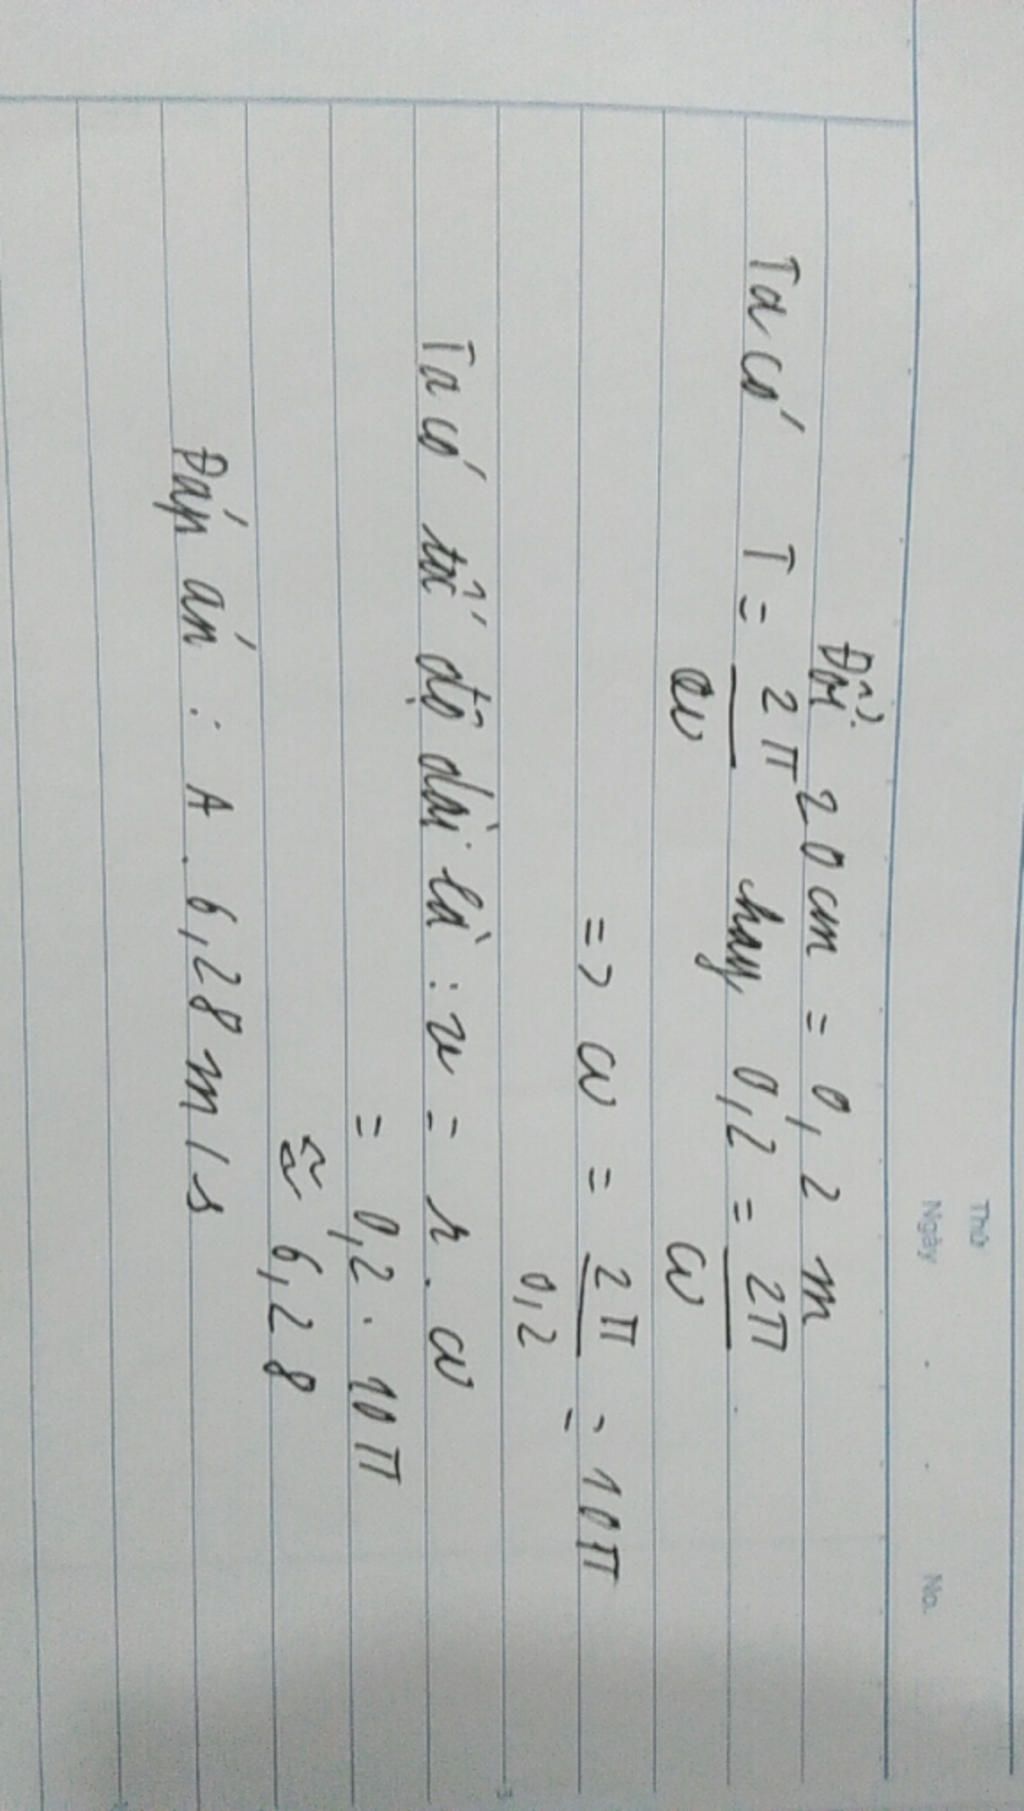 Thứ
Ngày . . No.
Đổi 20 cm = 0,2 m
Ta có T = 2π/ω hay 0,2 = 2π/ω
=> ω = 2π/0,2 = 10π
Ta có tốc độ dài là : v = r . ω
= 0,2 . 10π
≈ 6,28
Đáp án : A . 6,28 m/s